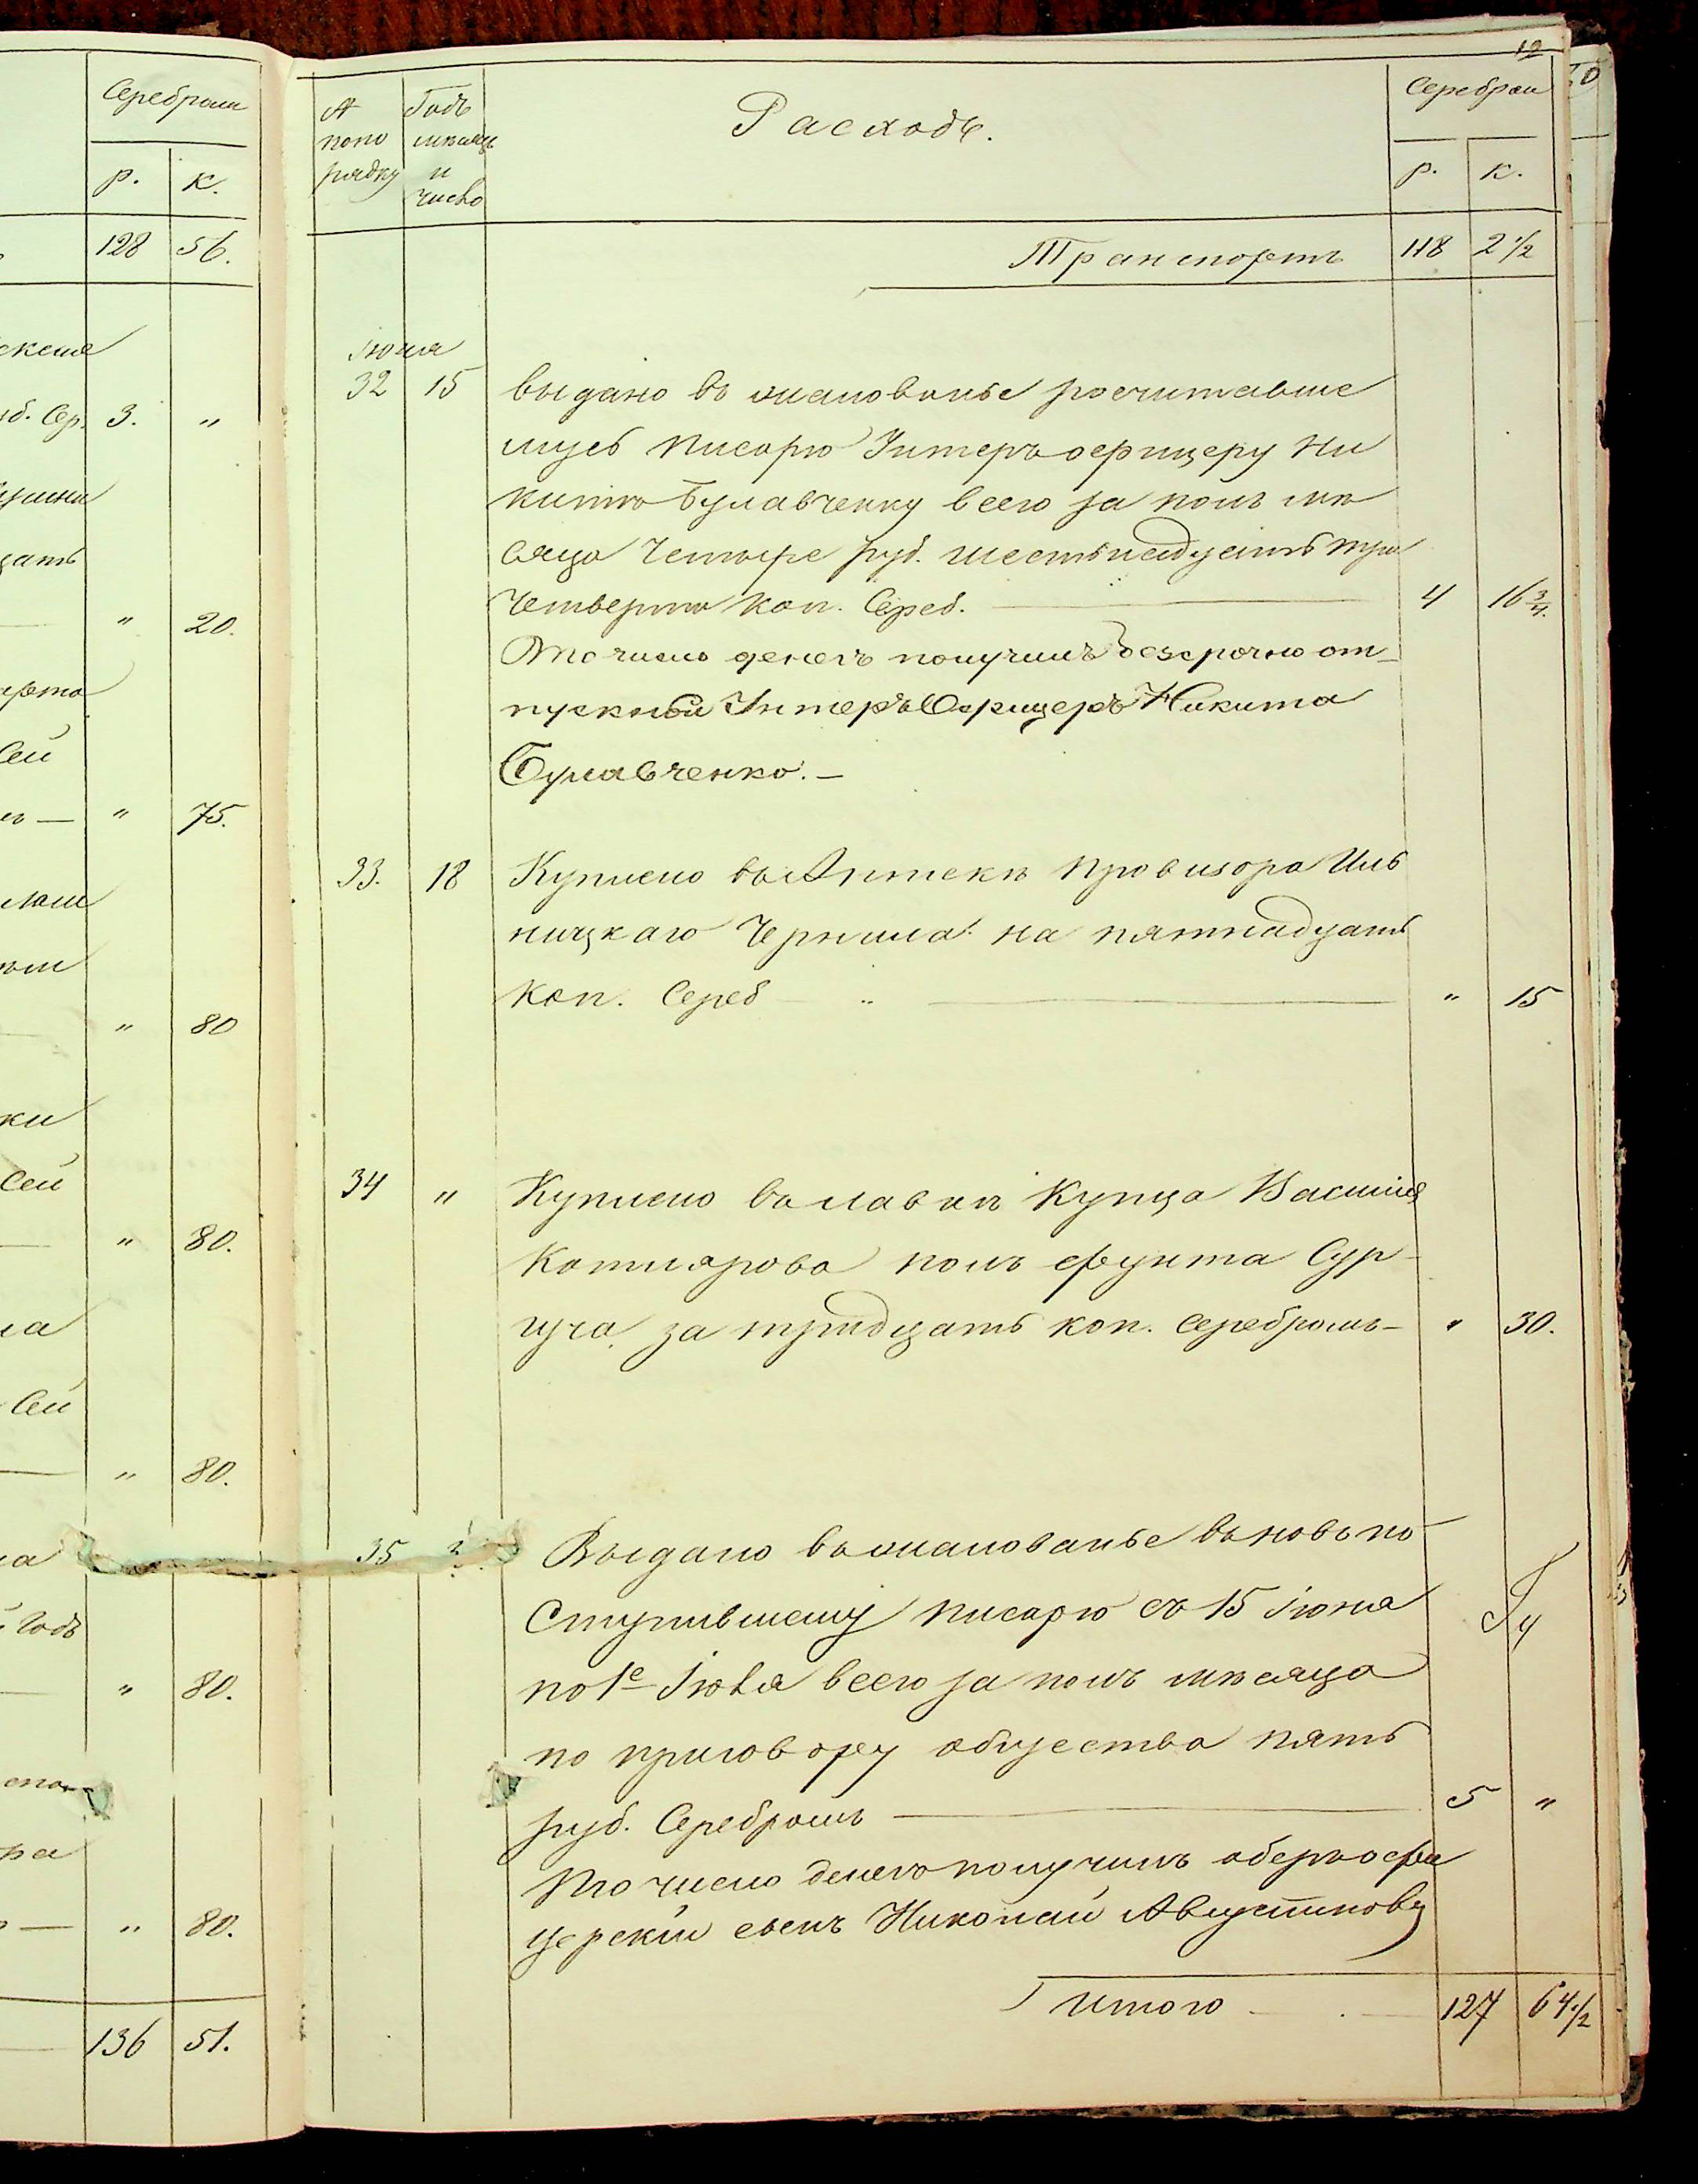 Серебромъ
р. к.
128 56.
б. Сер. 3. "
" 20.
Сей
— " 75.
" 80
ки
Сей
" 80.
Сей
— " 80.
Годъ
— " 80.
ра
— " 80.
136 51.
12
№ попо рядку
Годъ мѣсяцъ и число
Расходъ.
Серебром
р. к.
Транспортъ 118 2 1/2
Іюня
32 15 выдано въ жалованье росчитавше
муся писарю Унтеръ офицеру Ни
китѣ Булавченку всего за полъ мѣ
сяца четыре руб. шестьнадцать три
четверти коп. Сереб. — 4 16 3/4.
Это число денегъ получилъ безсрочно от-
пускной Унтеръ Офицеръ Никита
Булавченко. —
33. 18 Куплено въ Аптекѣ провизора Иль
ницкаго Чернила на пятнадцать
коп. Сереб " — " 15
34 " Куплено въ лавкѣ Купца Василія
Котлярова полъ фунта Сур-
гуча за тридцать коп. серебромъ — " 30.
35 Выдано въ жалованье въновь по-
ступившему писарю съ 15 Іюня
по 1е Іюля всего за полъ мѣсяца
по приговору общества пять
руб. Серебромъ — 5 "
Это число денегъ получилъ оберъ офи
церскій сынъ Николай Августиновъ
Итого — 127 64 1/2